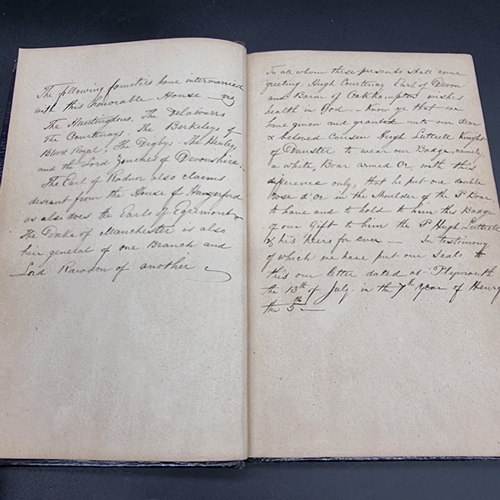 The following families have intermarried
with this Honorable House
The Huntingdons. The Delawares
The Courtenays. The Berkeleys of
Blood Royal. The Digbys. The
and the Lord Zouches of Devonshire.
The Earl of Radnor also claims
descent from the House of Hungerford
as also does the Earls of Egremont
The Duke of Manchester is also
heir general of one Branch and
Lord Rawdon of another
To all whom these presents shall come
greeting. Hugh Courtenay Earl of Devon
and Baron of Oakhampton wishes
health in God. Know ye that we
have given and granted unto our dear
& beloved Cousin Hugh Luttrell Knight
of Dunster to wear our Badge, namely
a white, Boar armed Or, with this
difference only, that he put one double
Rose d'Or in the Shoulder of the Sd Boar
to have and to hold to him this Badge
of our Gift to him the Sd Hugh Luttrell
& his Heirs for ever — In testimony
of which we have put our Seals to
this our letter dated at Plymouth
the 13th of July in the 7th year of Henry
the 5th —